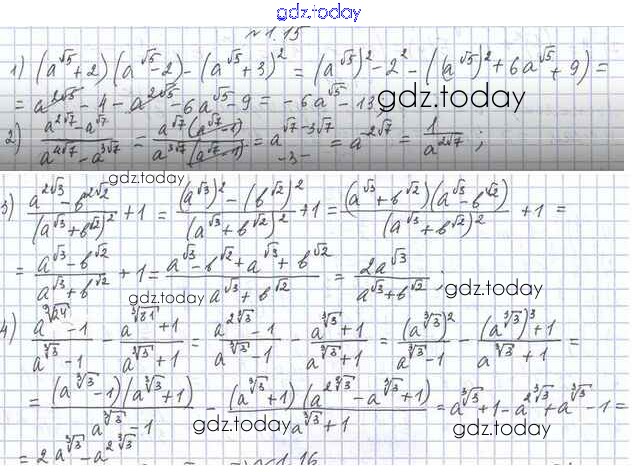 gdz.today
№1.15
1) (a^√5 + 2)(a^√5 - 2) - (a^√5 + 3)^2 = (a^√5)^2 - 2^2 - ((a^√5)^2 + 6a^√5 + 9) =
= a^2√5 - 4 - a^2√5 - 6a^√5 - 9 = -6a^√5 - 13;
gdz.today
2) (a^2√7 - a^√7)/(a^4√7 - a^3√7) = a^√7(a^√7 - 1)/a^3√7(a^√7 - 1) = a^√7-3√7 = a^-2√7 = 1/a^2√7;
-3-
gdz.today
3) (a^2√3 - b^2√2)/(a^√3 + b^√2)^2 + 1 = ((a^√3)^2 - (b^√2)^2)/(a^√3 + b^√2)^2 + 1 = (a^√3 + b^√2)(a^√3 - b^√2)/(a^√3 + b^√2)^2 + 1 =
gdz.today
= (a^√3 - b^√2)/(a^√3 + b^√2) + 1 = (a^√3 - b^√2 + a^√3 + b^√2)/(a^√3 + b^√2) = 2a^√3/(a^√3 + b^√2);
gdz.today gdz.today
4) (a^∛24 - 1)/(a^∛3 - 1) - (a^∛81 + 1)/(a^∛3 + 1) = (a^2∛3 - 1)/(a^∛3 - 1) - (a^∛3 + 1)/(a^∛3 + 1) = (a^∛3)^2/(a^∛3 - 1) - ((a^∛3)^3 + 1)/(a^∛3 + 1) =
= (a^∛3 - 1)(a^∛3 + 1)/(a^∛3 - 1) - (a^∛3 + 1)(a^2∛3 - a^∛3 + 1)/(a^∛3 + 1) = a^∛3 + 1 - a^2∛3 + a^∛3 - 1 =
gdz.today gdz.today
= 2a^∛3 - a^2∛3
№1.16